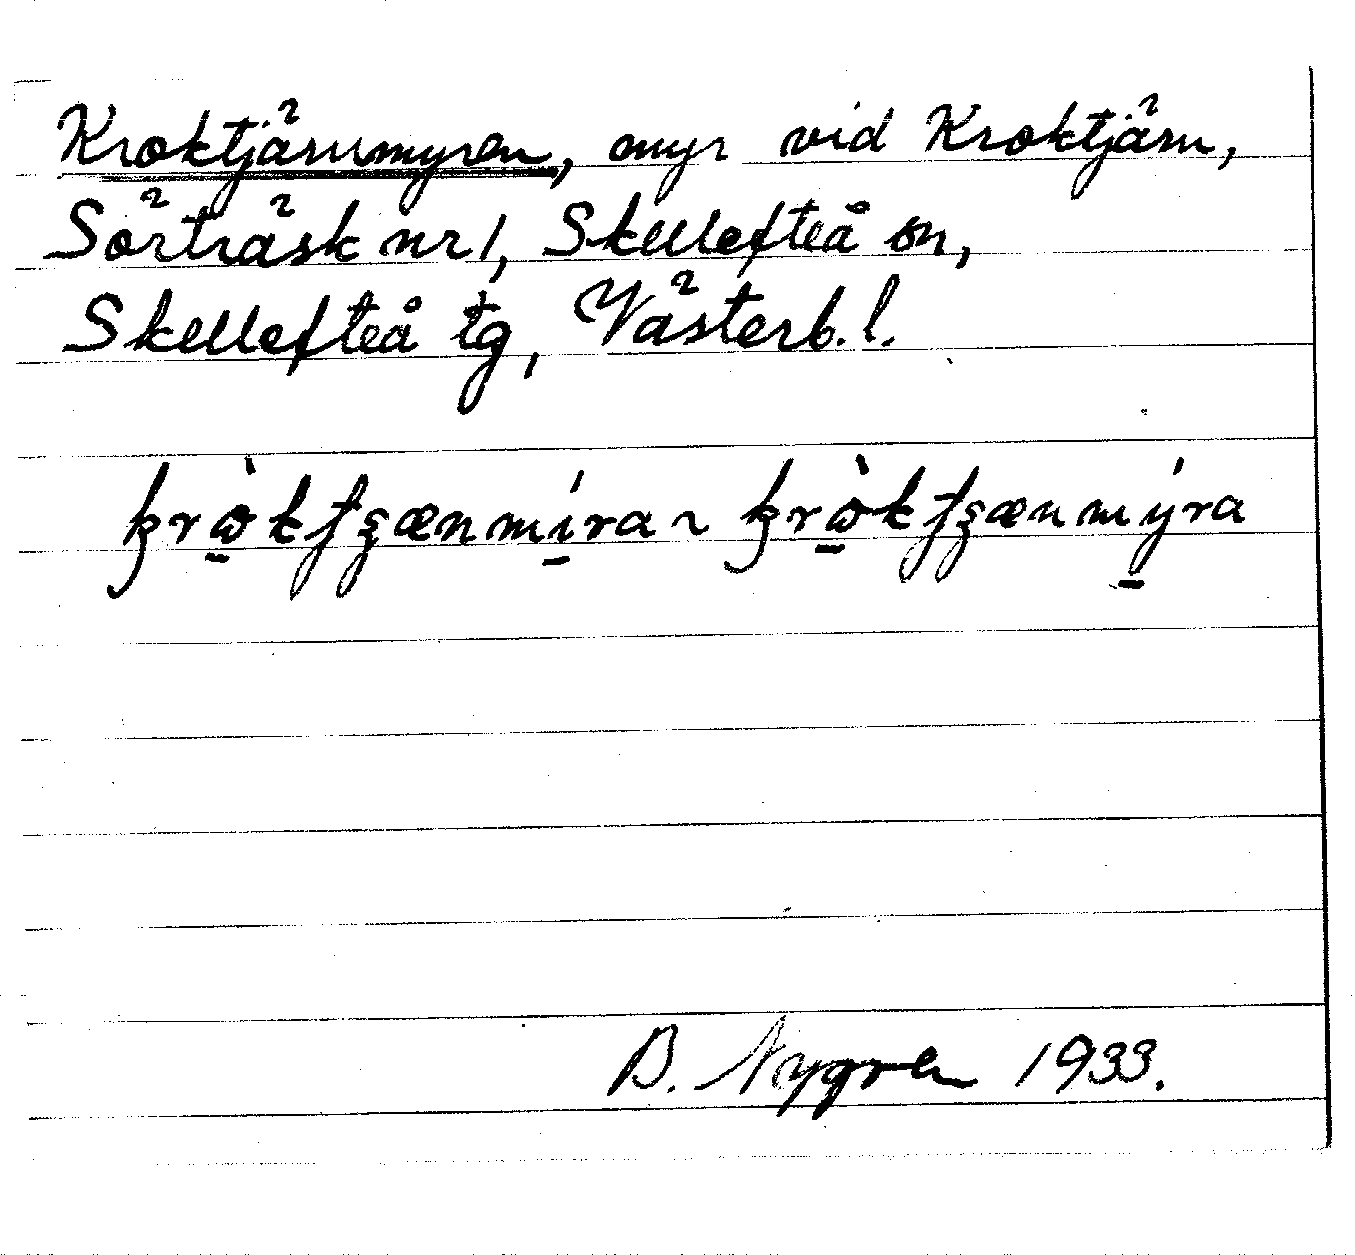 Kroktjärnmyren, myr vid Kroktjärn,
Sörträsk nr 1, Skellefteå sn,
Skellefteå tg, Västerb. l.
B. Nygren 1933.